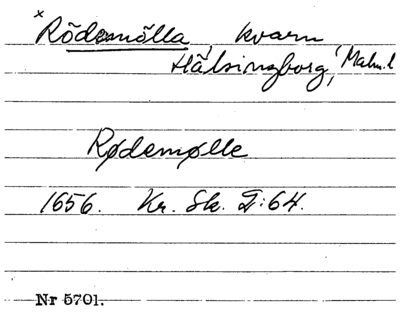 x Rödemölla, kvarn
Hälsingborg, Malm. l
Rødemølle
1656. Kr. Sk. D:64.
Nr 5701.